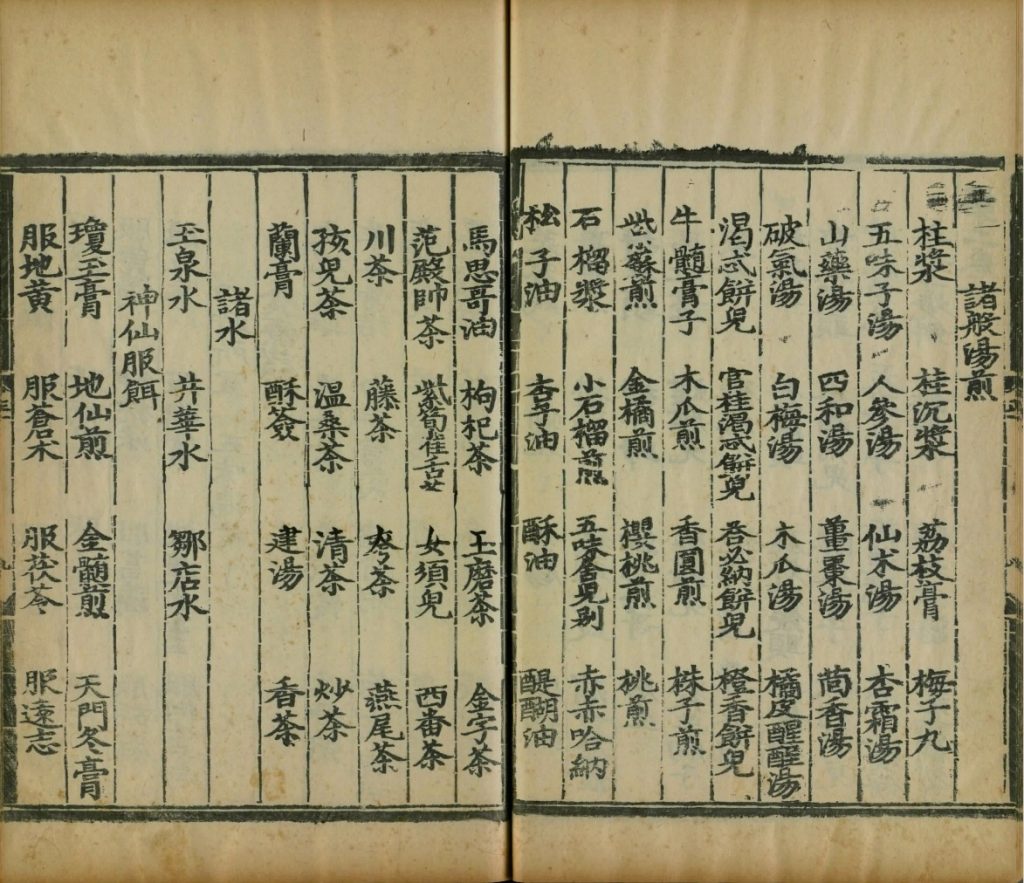 諸般湯煎
桂漿 桂沉漿 荔枝膏 梅子丸
五味子湯 人參湯 仙术湯 杏霜湯
山藥湯 四和湯 薑棗湯 茴香湯
破氣湯 白梅湯 木瓜湯 橘皮醒酲湯
渴忒餅兒 官桂渴忒餅兒 荅必納餅兒 橙香餅兒
牛髓膏子 木瓜煎 香圓煎 株子煎
紫蘇煎 金橘煎 櫻桃煎 桃煎
石榴漿 小石榴煎 五味舍兒別 赤赤哈納
松子油 杏子油 酥油 醍醐油
馬思哥油 枸杞茶 玉磨茶 金字茶
范殿帥茶 紫筍雀舌茶 女須兒 西番茶
川茶 藤茶 夸茶 燕尾茶
孩兒茶 溫桑茶 清茶 炒茶
蘭膏 酥簽 建湯 香茶
諸水
玉泉水 井華水 鄒店水
神仙服餌
瓊玉膏 地仙煎 金髓煎 天門冬膏
服地黃 服蒼术 服茯苓 服遠志